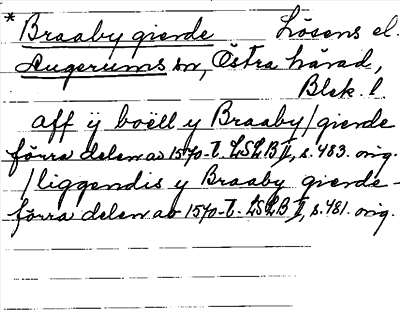 * Braaby gierde Lösens el.
Augerums sn, Östra härad,
Blek. l.
aff ÿ boëll y Braaby/gierde
förra delen av 1570-t. LSLB II, s. 483. orig.
/liggendis y Braaby gierde -
förra delen av 1570-t. LSLB II, s. 481. orig.